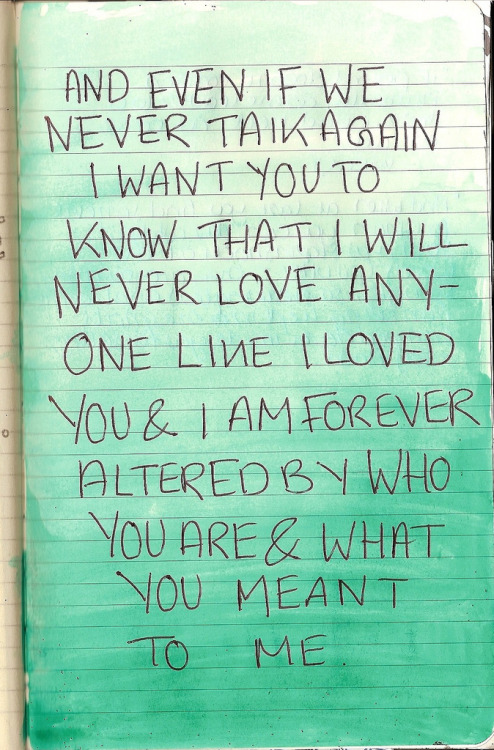 AND EVEN IF WE
NEVER TAIK AGAIN
I WANT YOU TO
KNOW THAT I WILL
NEVER LOVE ANY-
ONE LINE I LOVED
YOU & I AM FOREVER
ALTERED BY WHO
YOU ARE & WHAT
YOU MEANT
TO ME.